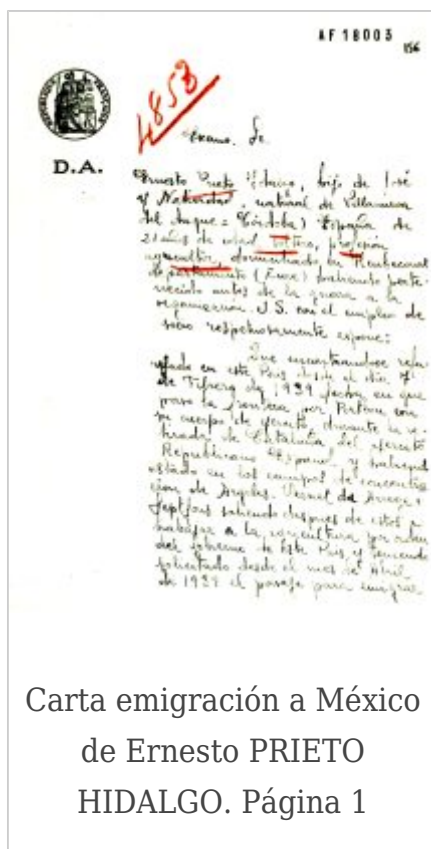 AF 18003
156
4858
D.A.
Excmo. Sr.
Ernesto Prieto hijo de José
y Natividad, natural de Villanueva
del Duque = Córdoba) España de
21 años de edad soltero, profesión
agricultor, domiciliado en
departamento (Eure) habiendo perte-
necido antes de la guerra a la
organización J.S. con el empleo de
socio respetuosamente expone:
Que encontrandose refu-
giado en este Pais desde el dia
de Febrero de 1939 fecha en que
paso la frontera por con
su cuerpo de ejercito, durante la re-
tirada de Cataluña del ejercito
Republicano Español y habiendo
estado en los campos de concentra-
cion de Argeles, Vernet de
Septfons saliendo despues de estos a
trabajar a la agricultura por orden
del gobierno de este Pais y teniendo
solicitado desde el mes de Abril
de 1939 el pasaje para emigrar
Carta emigración a México
de Ernesto PRIETO
HIDALGO. Página 1